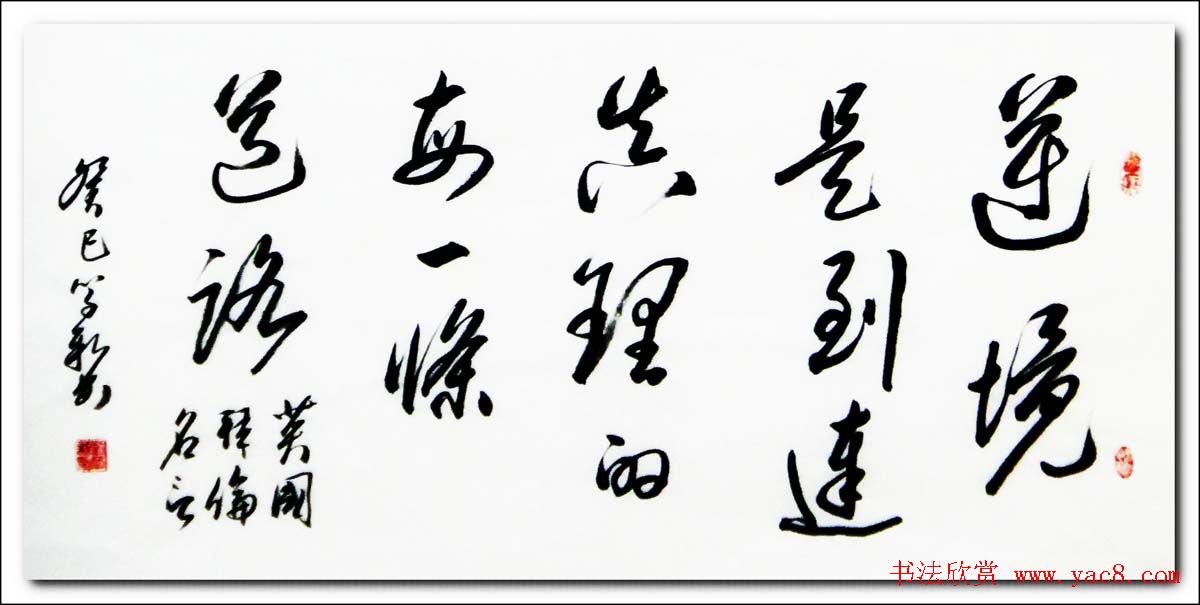 逆境
是到達
真理的
每一條
道路
英國
拜倫
名言
癸巳
书法欣赏 www.yac8.com